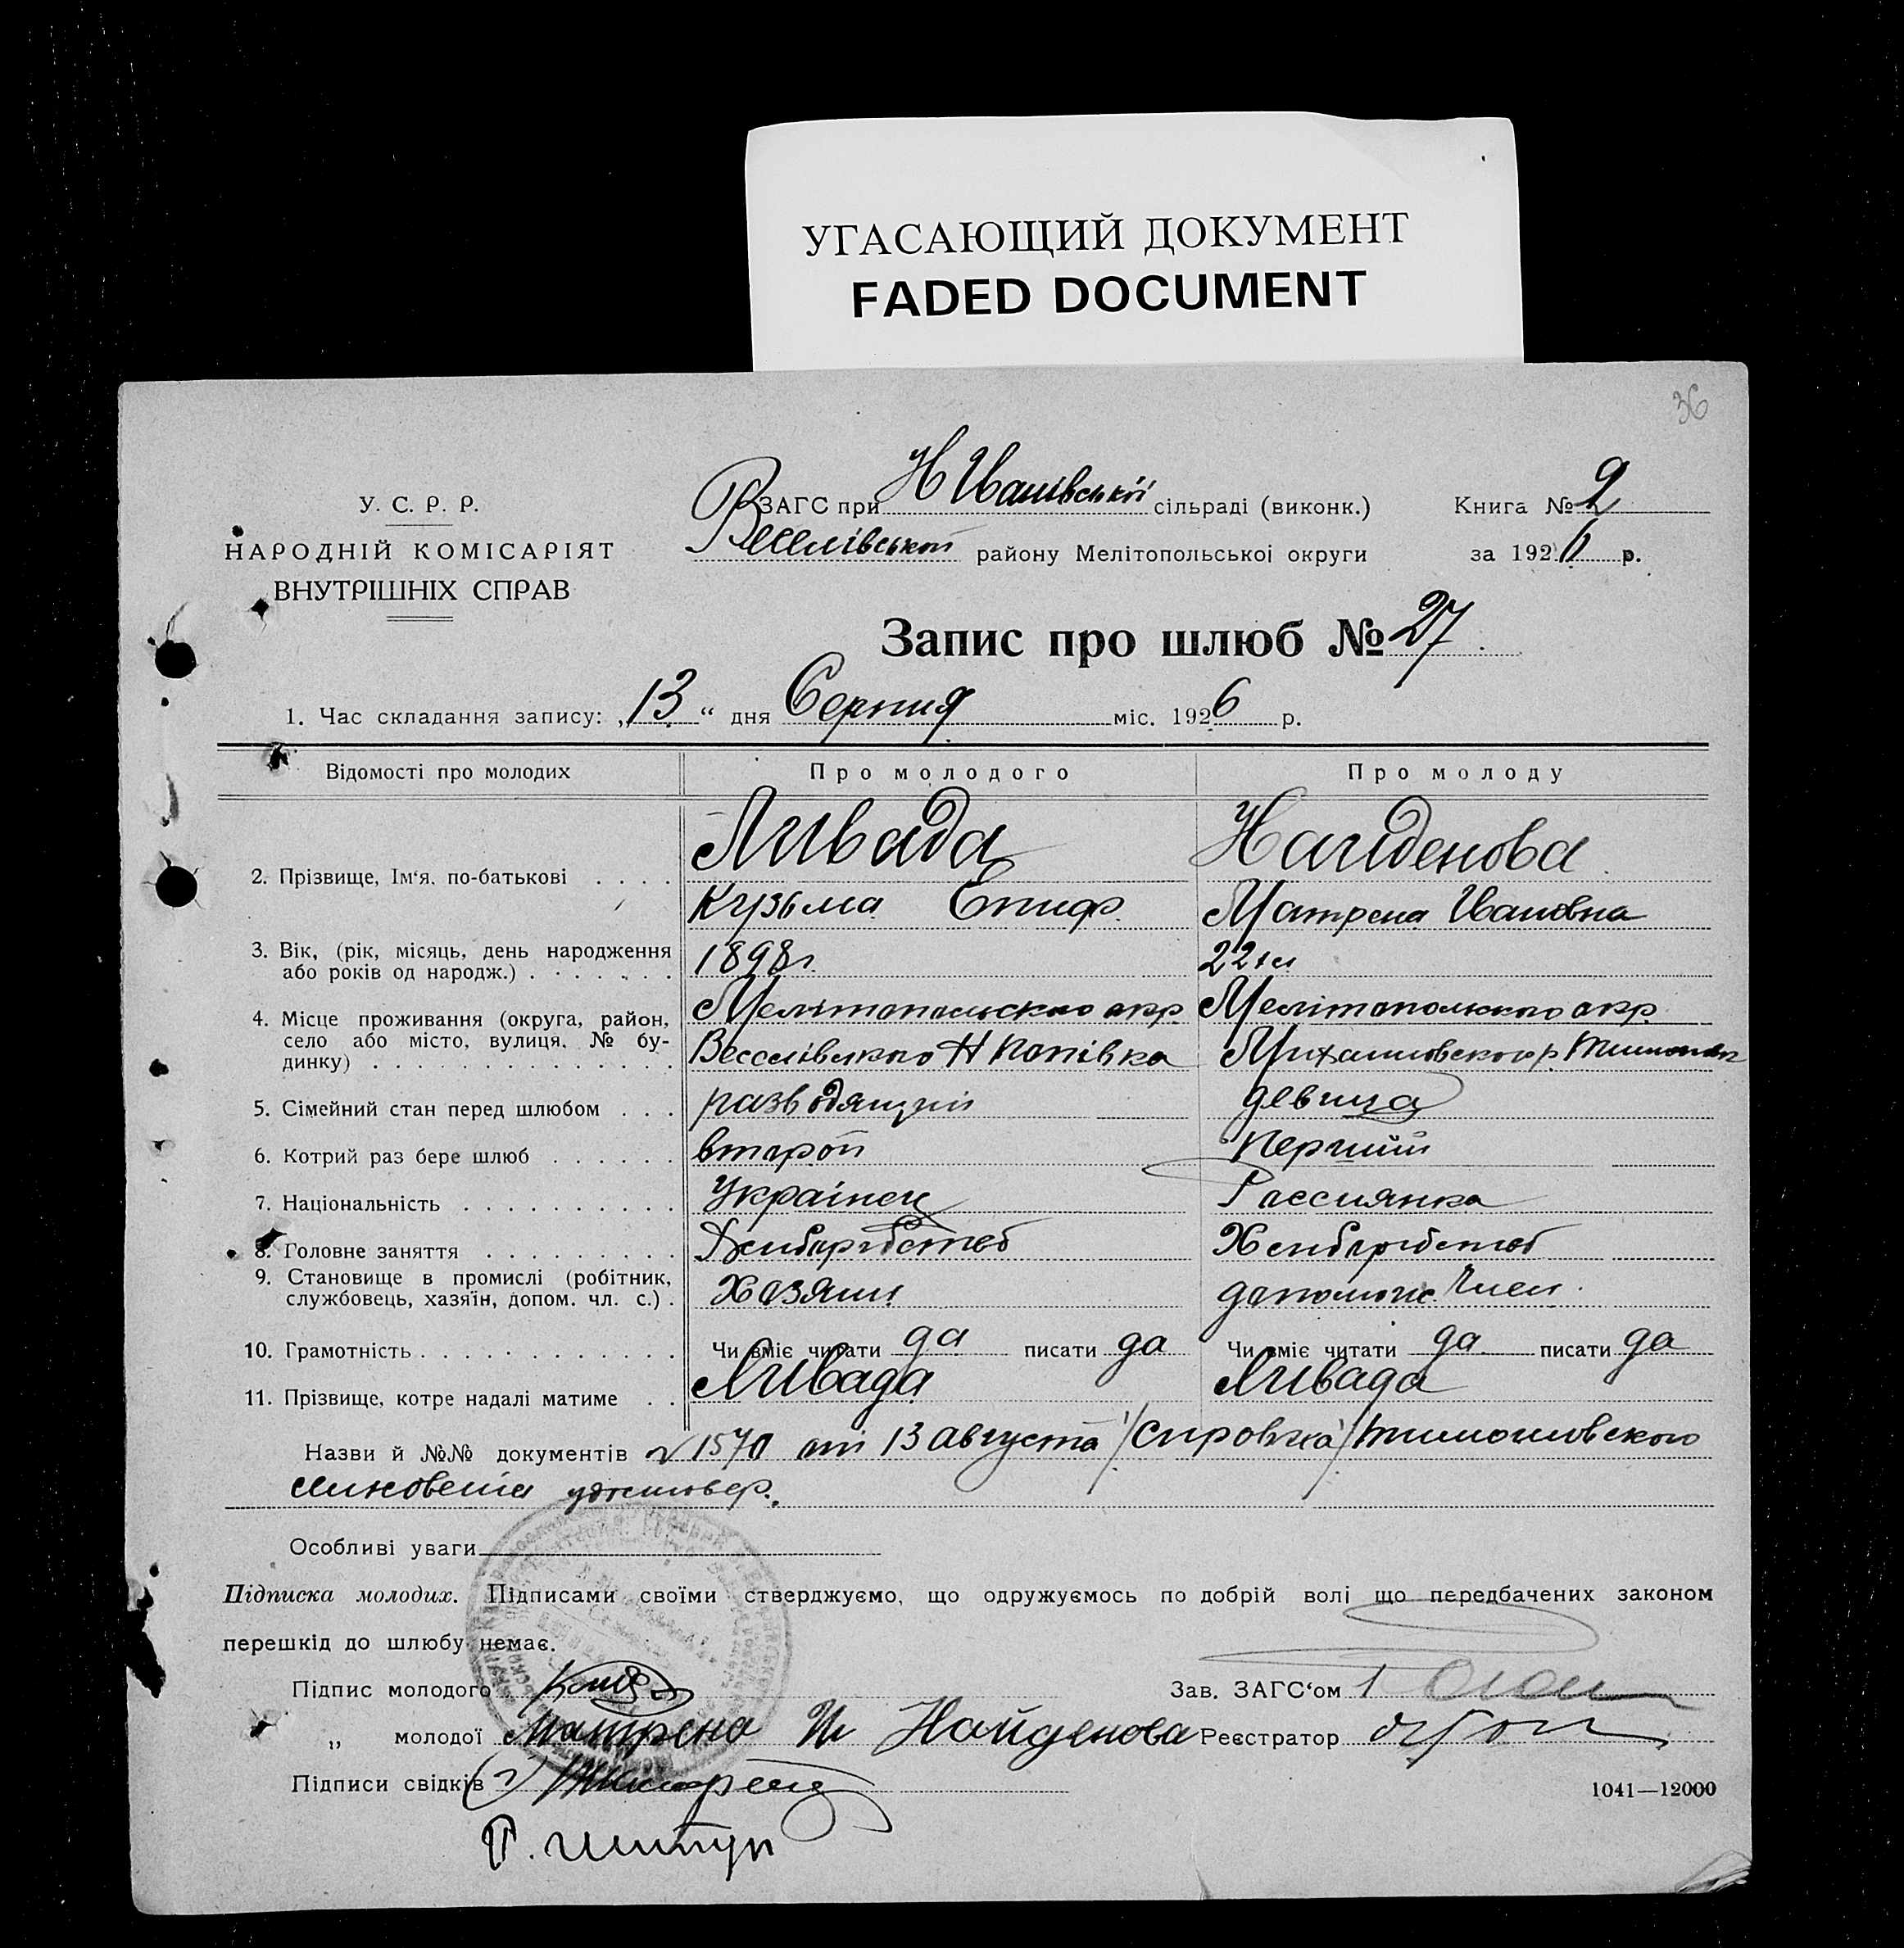 УГАСАЮЩИЙ ДОКУМЕНТ
FADED DOCUMENT
36
У. С. Р. Р.
НАРОДНІЙ КОМІСАРІЯТ
ВНУТРІШНІХ СПРАВ
ЗАГС при Н Иванівської сільраді (виконк.)
Веселівської району Мелітопольської округи
Книга № 2
за 1926 р.
Запис про шлюб № 27
1. Час складання запису: „13“ дня Серпня міс. 1926 р.
Відомості про молодих Про молодого Про молоду
Ливада Найденова
2. Прізвище, Ім‘я, по-батькові . . . .
Кузьма Епиф. Матрена Ивановна
3. Вік, (рік, місяць, день народження 1898 г. 22
або років од народж.) . . . . . . .
4. Місце проживання (округа, район, Мелітопольского окр. Мелітопольского окр.
село або місто, вулиця, № бу- Веселівского Н
динку) . . . . . . . . . . . . . . .
5. Сімейний стан перед шлюбом . . . разводящий девица
6. Котрий раз бере шлюб . . . . . . второй Перший
7. Національність . . . . . . . . . . Українец Россиянка
8. Головне заняття . . . . . . . . . Хлиборобство Хлиборобство
9. Становище в промислі (робітник, Хазяин допомож. член.
службовець, хазяїн, допом. чл. с.) .
10. Грамотність . . . . . . . . . . . . Чи вміє читати да писати да Чи вміє читати да писати да
11. Прізвище, котре надалі матиме . . Ливада Ливада
Назви й №№ документів № 1570 от 13 августа /Справка/ Тимошовского
удостовер.
Особливі уваги
Підписка молодих. Підписами своїми стверджуємо, що одружуємось по добрій волі що передбачених законом
перешкід до шлюбу немає.
Підпис молодого Зав. ЗАГС‘ом
„ молодої Матрена И Найденова Реєстратор
Підписи свідків
1041—12000